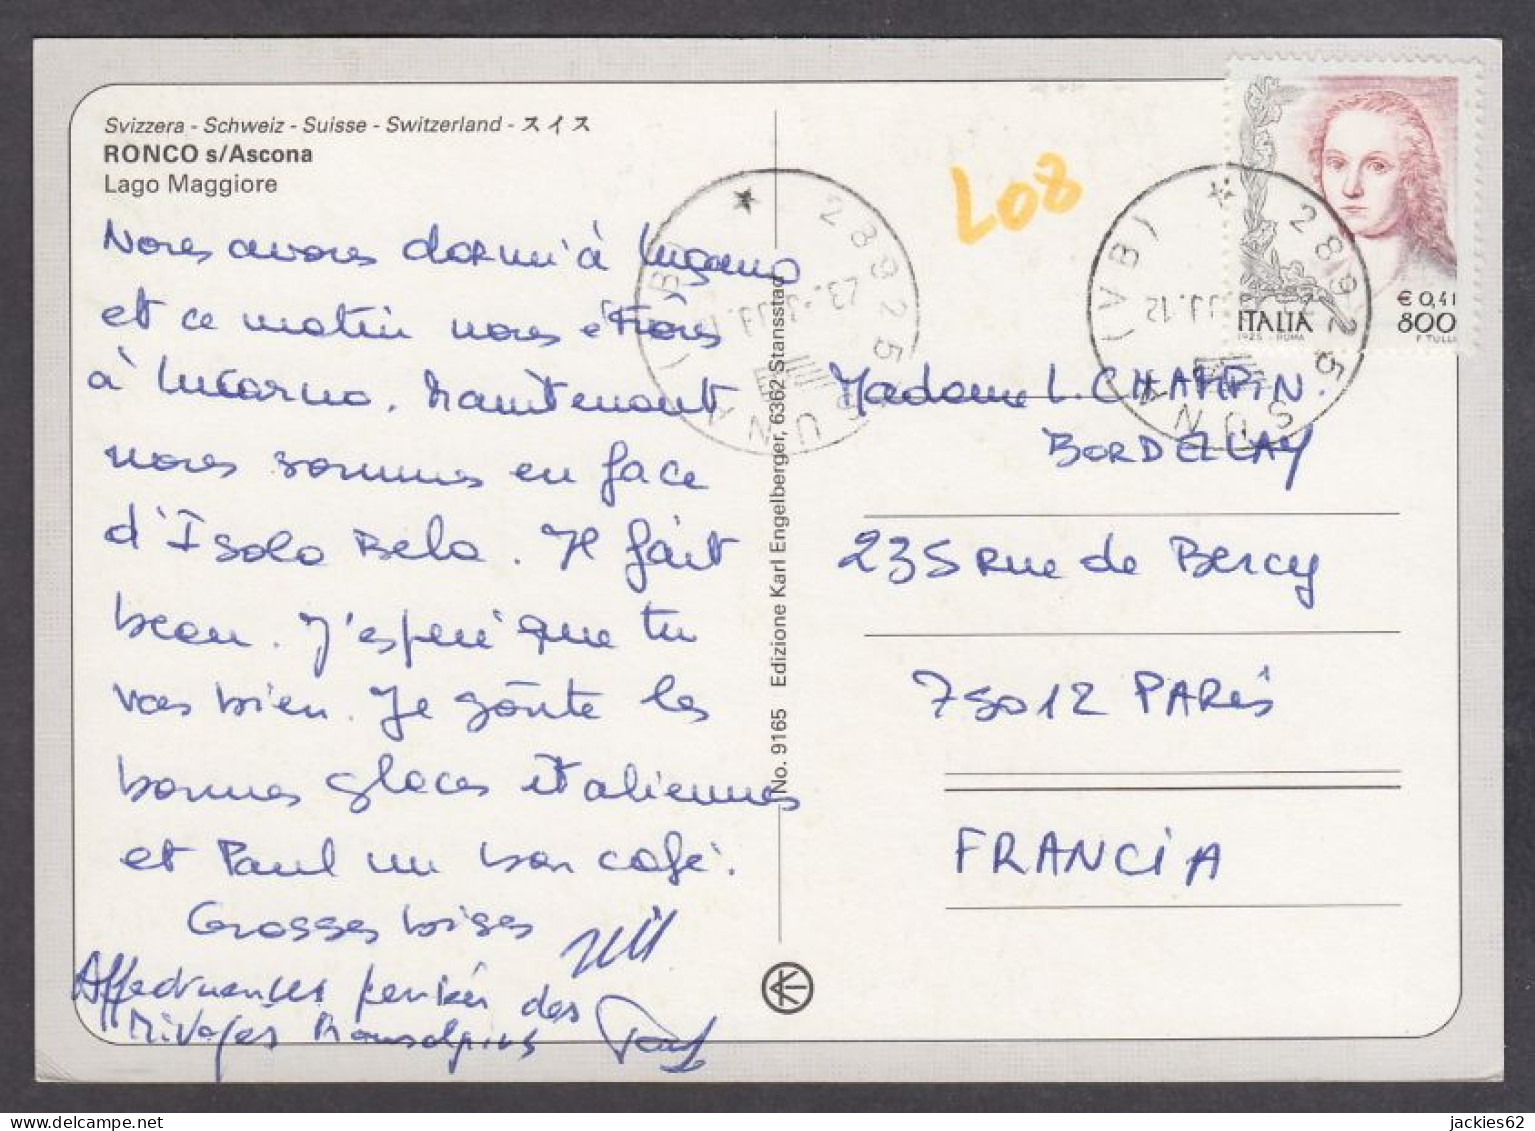 Svizzera - Schweiz - Suisse - Switzerland - スイス
RONCO s/Ascona
Lago Maggiore
Nous avons dormi à Lugano
et ce matin nous étions
à Locarno. Maintenant
nous sommes en face
d'Isola Bela. Il fait
beau. J'espere que tu
vas bien. Je goûte les
bonnes glaces italiennes
et Paul un bon café.
Grosses bises
Affectueuses pensées des
No. 9165 Edizione Karl Engelberger, 6362 Stansstad
L08
28925
SUNA (VB)
28925
SUNA (VB)
€ 0,41
800
ITALIA
Madame L. CHAMPIN.
BORDELLAY
235 Rue de Bercy
75012 PARIS
FRANCIA
jackies62